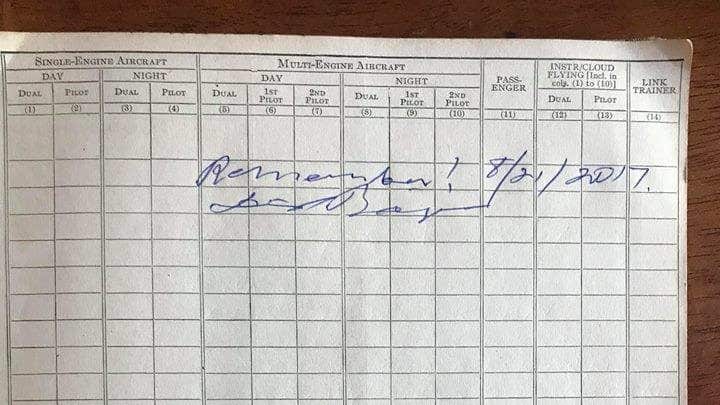 SINGLE-ENGINE AIRCRAFT MULTI-ENGINE AIRCRAFT PASS-ENGER INSTR/CLOUD FLYING [Incl. in cols. (1) to (10)] LINK TRAINER
DAY NIGHT DAY NIGHT
DUAL PILOT DUAL PILOT DUAL 1ST PILOT 2ND PILOT DUAL 1ST PILOT 2ND PILOT DUAL PILOT
(1) (2) (3) (4) (5) (6) (7) (8) (9) (10) (11) (12) (13) (14)
Remember! 8/21/2017.